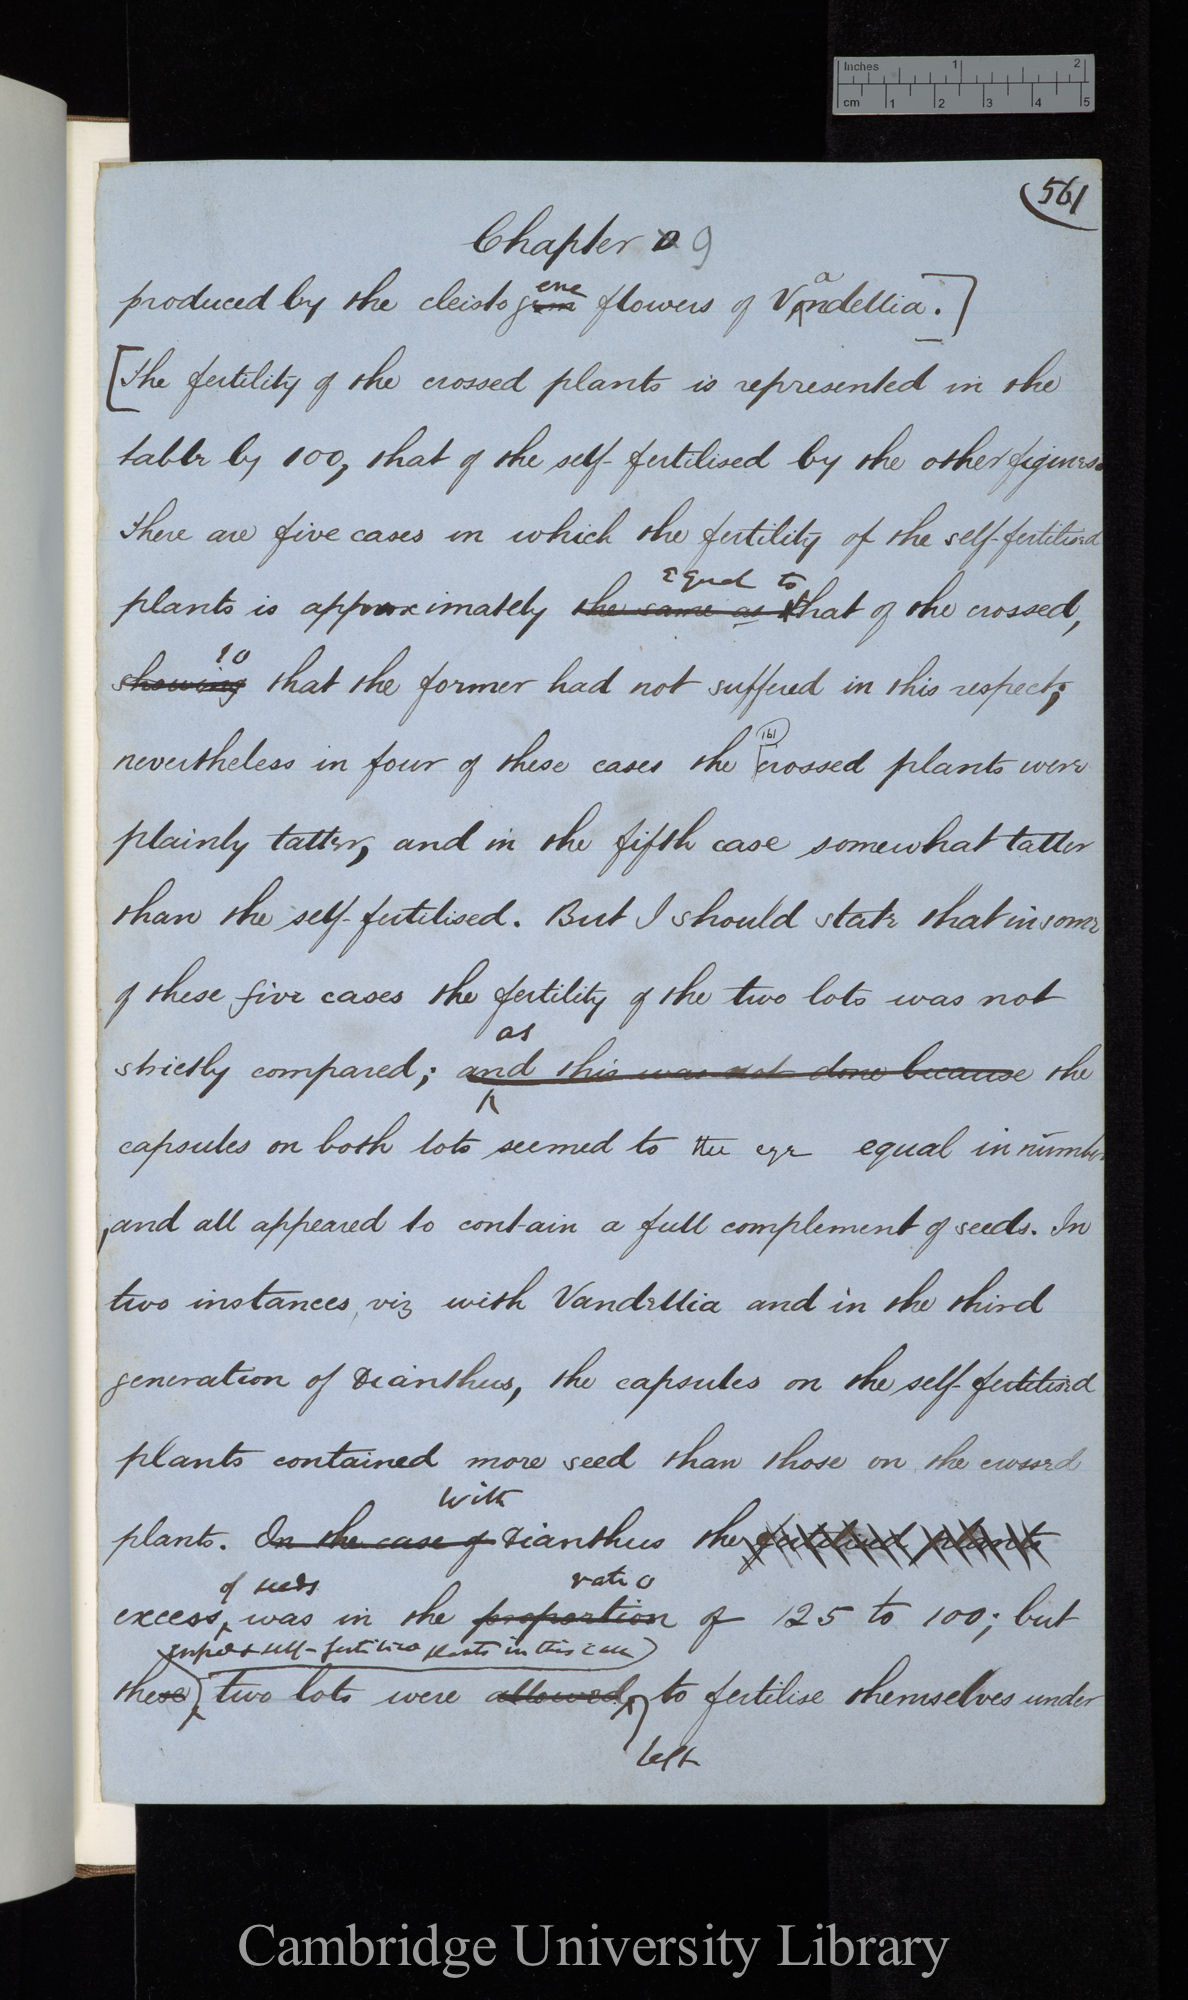 Inches 1 2
cm 1 2 3 4 5
(561
Chapter 9
ene a
produced by the cleistogene flowers of Vandellia.]
[The fertility of the crossed plants is represented in the
table by 100, that of the self-fertilised by the other figures.
There are five cases in which the fertility of the self-fertilised
equal to
plants is approximately the same as that of the crossed,
so
showing that the former had not suffered in this respect;
161
nevertheless in four of these cases the crossed plants were
plainly taller, and in the fifth case somewhat taller
than the self-fertilised. But I should state that in some
of these five cases the fertility of the two lots was not
as
strictly compared; and this was not done because the
capsules on both lots seemed to the eye equal in number
, and all appeared to contain a full complement of seeds. In
two instances, viz with Vandellia and in the third
generation of Dianthus, the capsules on the self-fertilised
plants contained more seed than those on the crossed
With
plants. In the case of Dianthus the fertilised plants
of seeds ratio
excess, was in the proportion of 125 to 100; but
self-fertilised plants in this case)
these two lots were allowed, to fertilise themselves under
left
Cambridge University Library